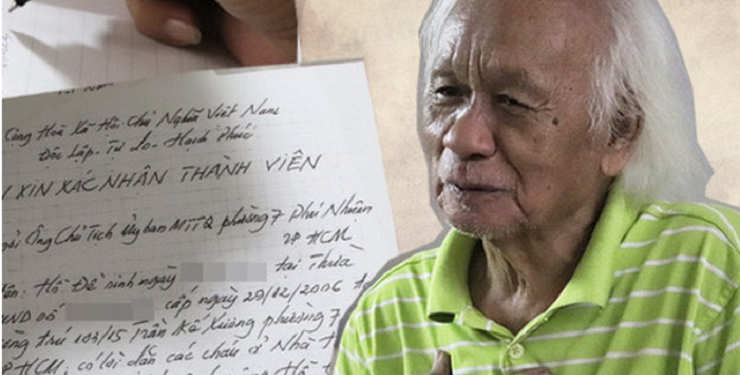 Cộng Hoà Xã Hội Chủ Nghĩa Việt Nam
Độc Lập - Tự Do - Hạnh Phúc
XIN XÁC NHÂN THÀNH VIÊN
Ông Chủ Tịch Ủy ban MTTQ phường 7 Phú Nhuận
TP HCM
Hồ Đề sinh ngày tại Thừa
CMND số cấp ngày 29/12/2006
trú 103/15 Trần Kế Xương phường 7
HCM, có lời dẫn các cháu ở Nhà